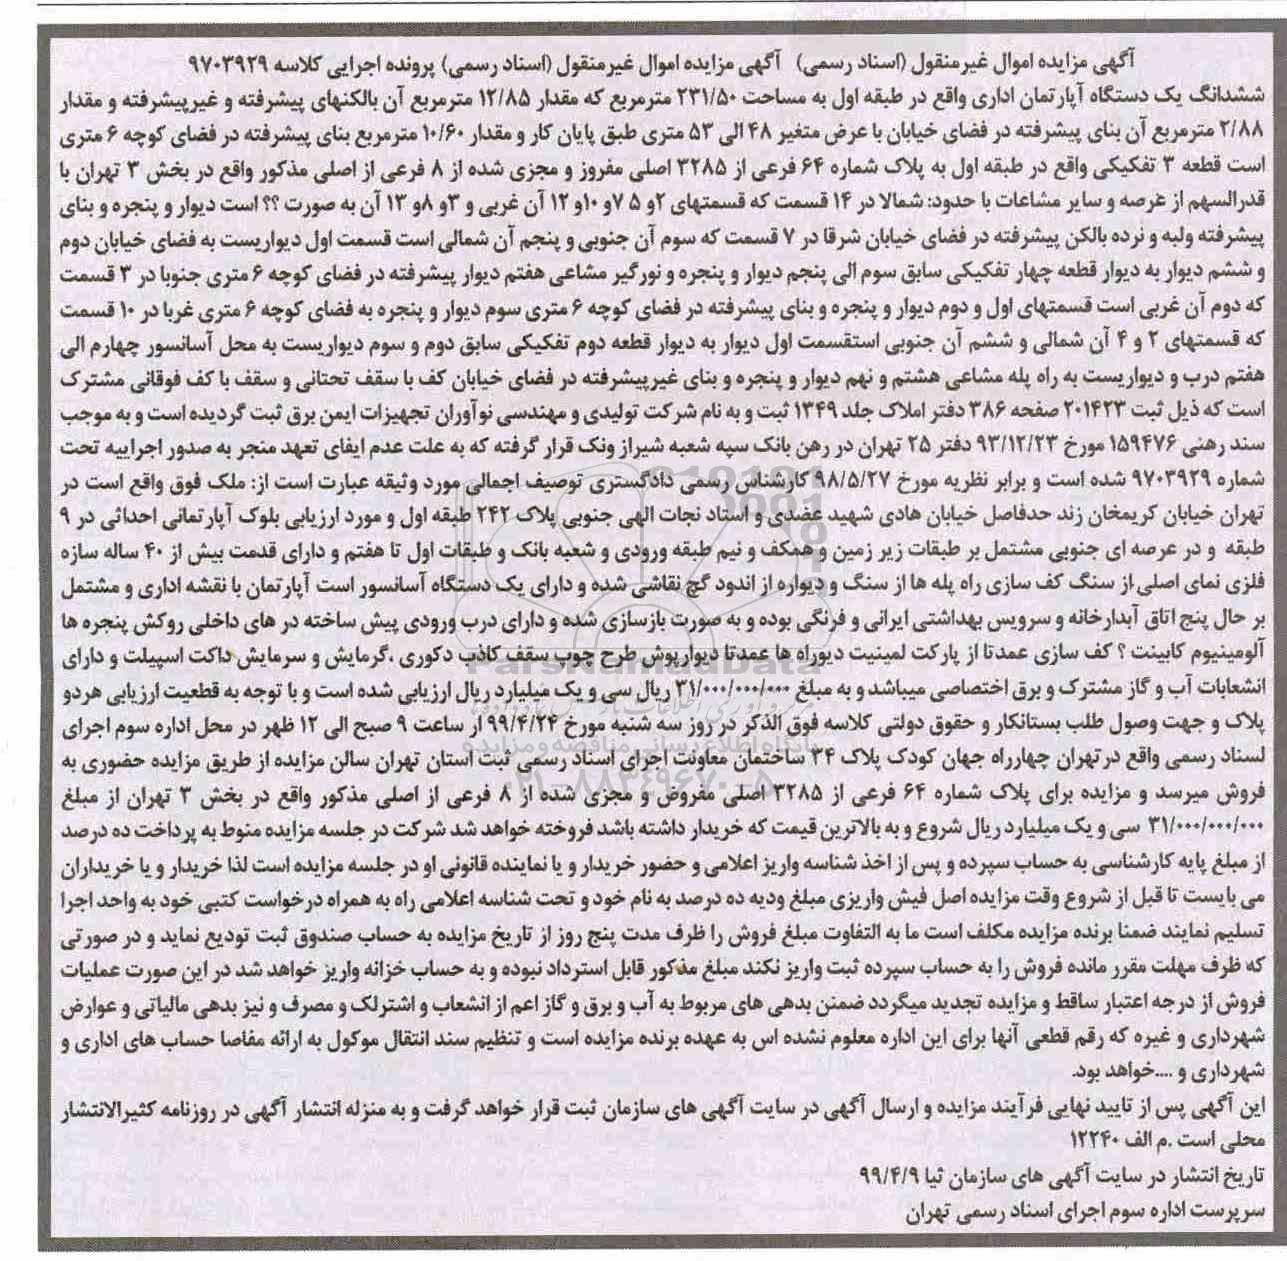 آگهی مزایده اموال غیرمنقول (اسناد رسمی) آگهی مزایده اموال غیرمنقول (اسناد رسمی) پرونده اجرایی کلاسه ۹۷۰۳۹۲۹
ششدانگ یک دستگاه آپارتمان اداری واقع در طبقه اول به مساحت ۲۳۱/۵۰ مترمربع که مقدار ۱۲/۸۵ مترمربع آن بالکنهای پیشرفته و غیرپیشرفته و مقدار
۲/۸۸ مترمربع آن بنای پیشرفته در فضای خیابان با عرض متغیر ۴۸ الی ۵۳ متری طبق پایان کار و مقدار ۱۰/۶۰ مترمربع بنای پیشرفته در فضای کوچه ۶ متری
است قطعه ۳ تفکیکی واقع در طبقه اول به پلاک شماره ۶۴ فرعی از ۳۲۸۵ اصلی مفروز و مجزی شده از ۸ فرعی از اصلی مذکور واقع در بخش ۳ تهران با
قدرالسهم از عرصه و سایر مشاعات با حدود: شمالا در ۱۴ قسمت که قسمتهای ۲و ۵ ۷و ۱۰و ۱۲ آن غربی و ۳و ۸و ۱۳ آن به صورت ؟؟ است دیوار و پنجره و بنای
پیشرفته ولبه و نرده بالکن پیشرفته در فضای خیابان شرقا در ۷ قسمت که سوم آن جنوبی و پنجم آن شمالی است قسمت اول دیواریست به فضای خیابان دوم
و ششم دیوار به دیوار قطعه چهار تفکیکی سابق سوم الی پنجم دیوار و پنجره و نورگیر مشاعی هفتم دیوار پیشرفته در فضای کوچه ۶ متری جنوبا در ۳ قسمت
که دوم آن غربی است قسمتهای اول و دوم دیوار و پنجره و بنای پیشرفته در فضای کوچه ۶ متری سوم دیوار و پنجره به فضای کوچه ۶ متری غربا در ۱۰ قسمت
که قسمتهای ۲ و ۴ آن شمالی و ششم آن جنوبی استقسمت اول دیوار به دیوار قطعه دوم تفکیکی سابق دوم و سوم دیواریست به محل آسانسور چهارم الی
هفتم درب و دیواریست به راه پله مشاعی هشتم و نهم دیوار و پنجره و بنای غیرپیشرفته در فضای خیابان کف با سقف تحتانی و سقف با کف فوقانی مشترک
است که ذیل ثبت ۲۰۱۴۲۳ صفحه ۳۸۶ دفتر املاک جلد ۱۳۴۹ ثبت و به نام شرکت تولیدی و مهندسی نوآوران تجهیزات ایمن برق ثبت گردیده است و به موجب
سند رهنی ۱۵۹۴۷۶ مورخ ۹۳/۱۲/۲۳ دفتر ۲۵ تهران در رهن بانک سپه شعبه شیراز ونک قرار گرفته که به علت عدم ایفای تعهد منجر به صدور اجراییه تحت
شماره ۹۷۰۳۹۲۹ شده است و برابر نظریه مورخ ۹۸/۵/۲۷ کارشناس رسمی دادگستری توصیف اجمالی مورد وثیقه عبارت است از: ملک فوق واقع است در
تهران خیابان کریمخان زند حدفاصل خیابان هادی شهید عضدی و استاد نجات الهی جنوبی پلاک ۲۴۲ طبقه اول و مورد ارزیابی بلوک آپارتمانی احداثی در ۹
طبقه و در عرصه ای جنوبی مشتمل بر طبقات زیر زمین و همکف و نیم طبقه ورودی و شعبه بانک و طبقات اول تا هفتم و دارای قدمت بیش از ۴۰ ساله سازه
فلزی نمای اصلی از سنگ کف سازی راه پله ها از سنگ و دیواره از اندود گچ نقاشی شده و دارای یک دستگاه آسانسور است آپارتمان با نقشه اداری و مشتمل
بر حال پنج اتاق آبدارخانه و سرویس بهداشتی ایرانی و فرنگی بوده و به صورت بازسازی شده و دارای درب ورودی پیش ساخته در های داخلی روکش پنجره ها
آلومینیوم کابینت ؟ کف سازی عمدتا از پارکت لمینیت دیوراه ها عمدتا دیوارپوش طرح چوب سقف کاذب دکوری .گرمایش و سرمایش داکت اسپیلت و دارای
ParsNamadData
انشعابات آب و گاز مشترک و برق اختصاصی میباشد و به مبلغ ۳۱/۰۰۰/۰۰۰/۰۰۰ ریال سی و یک میلیارد ریال ارزیابی شده است و با توجه به قطعیت ارزیابی هردو
پلاک و جهت وصول طلب بستانکار و حقوق دولتی کلاسه فوق الذکر در روز سه شنبه مورخ ۹۹/۴/۲۴ از ساعت ۹ صبح الی ۱۲ ظهر در محل اداره سوم اجرای
پایگاه اطلاع رسانی مناقصه و مزایده
لسناد رسمی واقع در تهران چهارراه جهان کودک پلاک ۳۴ ساختمان معاونت اجرای اسناد رسمی ثبت استان تهران سالن مزایده از طریق مزایده حضوری به
۰۲۱-۸۸۳۴۹۶۷۰-۵
فروش میرسد و مزایده برای پلاک شماره ۶۴ فرعی از ۳۲۸۵ اصلی مفروض و مجزی شده از ۸ فرعی از اصلی مذکور واقع در بخش ۳ تهران از مبلغ
۳۱/۰۰۰/۰۰۰/۰۰۰ سی و یک میلیارد ریال شروع و به بالاترین قیمت که خریدار داشته باشد فروخته خواهد شد شرکت در جلسه مزایده منوط به پرداخت ده درصد
از مبلغ پایه کارشناسی به حساب سپرده و پس از اخذ شناسه واریز اعلامی و حضور خریدار و یا نماینده قانونی او در جلسه مزایده است لذا خریدار و یا خریداران
می بایست تا قبل از شروع وقت مزایده اصل فیش واریزی مبلغ ودیه ده درصد به نام خود و تحت شناسه اعلامی راه به همراه درخواست کتبی خود به واحد اجرا
تسلیم نمایند ضمنا برنده مزایده مکلف است ما به التفاوت مبلغ فروش را ظرف مدت پنج روز از تاریخ مزایده به حساب صندوق ثبت تودیع نماید و در صورتی
که ظرف مهلت مقرر مانده فروش را به حساب سپرده ثبت واریز نکند مبلغ مذکور قابل استرداد نبوده و به حساب خزانه واریز خواهد شد در این صورت عملیات
فروش از درجه اعتبار ساقط و مزایده تجدید میگردد ضمنن بدهی های مربوط به آب و برق و گاز اعم از انشعاب و اشترلک و مصرف و نیز بدهی مالیاتی و عوارض
شهرداری و غیره که رقم قطعی آنها برای این اداره معلوم نشده اس به عهده برنده مزایده است و تنظیم سند انتقال موکول به ارائه مفاصا حساب های اداری و
شهرداری و ....خواهد بود.
این آگهی پس از تایید نهایی فرآیند مزایده و ارسال آگهی در سایت آگهی های سازمان ثبت قرار خواهد گرفت و به منزله انتشار آگهی در روزنامه کثیرالانتشار
محلی است .م الف ۱۲۲۴۰
تاریخ انتشار در سایت آگهی های سازمان ثیا ۹۹/۴/۹
سرپرست اداره سوم اجرای اسناد رسمی تهران